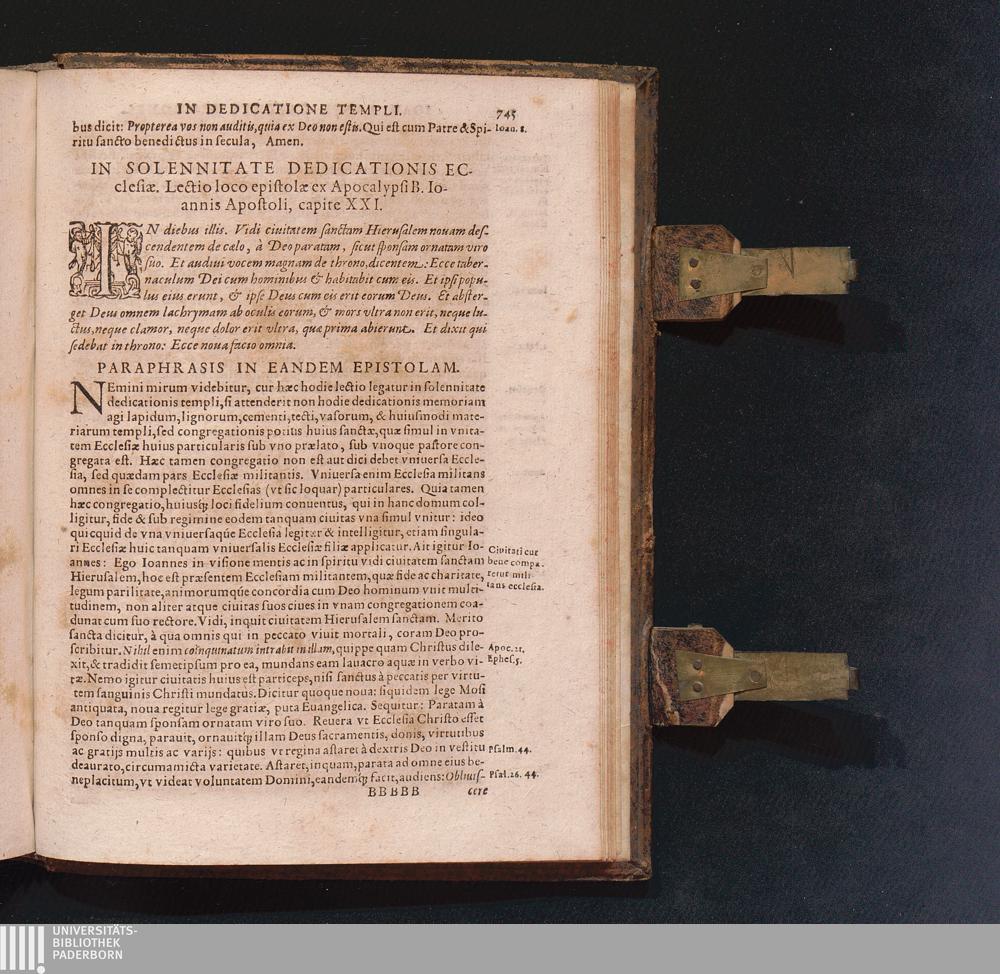 IN DEDICATIONE TEMPLI. 745
bus dicit: Propterea vos non auditis, quia ex Deo non estis. Qui est cum Patre & Spi- Ioan. 8.
ritu sancto benedictus in secula, Amen.
IN SOLENNITATE DEDICATIONIS EC-
clesiæ. Lectio loco epistolæ ex Apocalypsi B. Io-
annis Apostoli, capite XXI.
IN diebus illis. Vidi ciuitatem sanctam Hierusalem nouam des-
cendentem de cælo, à Deo paratam, sicut sponsam ornatam viro
suo. Et audiui vocem magnam de throno, dicentem: Ecce taber-
naculum Dei cum hominibus & habitabit cum eis. Et ipsi popu-
lus eius erunt, & ipse Deus cum eis erit eorum Deus. Et abster-
get Deus omnem lachrymam ab oculis eorum, & mors vltra non erit, neque lu-
ctus, neque clamor, neque dolor erit vltra, quæ prima abierunt. Et dixit qui
sedebat in throno: Ecce noua facio omnia.
PARAPHRASIS IN EANDEM EPISTOLAM.
NEmini mirum videbitur, cur hæc hodie lectio legatur in solennitate
dedicationis templi, si attenderit non hodie dedicationis memoriam
agi lapidum, lignorum, cementi, tecti, vasorum, & huiusmodi mate-
riarum templi, sed congregationis potius huius sanctæ, quæ simul in vnita-
tem Ecclesiæ huius particularis sub vno prælato, sub vnoque pastore con-
gregata est. Hæc tamen congregatio non est aut dici debet vniuersa Eccle-
sia, sed quædam pars Ecclesiæ militantis. Vniuersa enim Ecclesia militans
omnes in se complectitur Ecclesias (vt sic loquar) particulares. Quia tamen
hæc congregatio, huiusq; loci fidelium conuentus, qui in hanc domum col-
ligitur, fide & sub regimine eodem tanquam ciuitas vna simul vnitur: ideo
quicquid de vna vniuersaque Ecclesia legitur & intelligitur, etiam singula-
ri Ecclesiæ huic tanquam vniuersalis Ecclesiæ filiæ applicatur. Ait igitur Io- Ciuitati cur
annes: Ego Ioannes in visione mentis ac in spiritu vidi ciuitatem sanctam bene compa-
Hierusalem, hoc est præsentem Ecclesiam militantem, quæ fide ac charitate, retur mili-
legum parilitate, animorumque concordia cum Deo hominum vnit multi- tans ecclesia.
tudinem, non aliter atque ciuitas suos ciues in vnam congregationem coa-
dunat cum suo rectore. Vidi, inquit ciuitatem Hierusalem sanctam. Merito
sancta dicitur, à qua omnis qui in peccato viuit mortali, coram Deo pro-
scribitur. Nihil enim coinquinatum intrabit in illam, quippe quam Christus dile- Apoc. 21.
xit, & tradidit semetipsum pro ea, mundans eam lauacro aquæ in verbo vi- Ephes. 5.
tæ. Nemo igitur ciuitatis huius est particeps, nisi sanctus à peccatis per virtu-
tem sanguinis Christi mundatus. Dicitur quoque noua: siquidem lege Mosi
antiquata, noua regitur lege gratiæ, puta Euangelica. Sequitur: Paratam à
Deo tanquam sponsam ornatam viro suo. Reuera vt Ecclesia Christo esset
sponso digna, parauit, ornauitq; illam Deus sacramentis, donis, virtutibus
ac gratijs multis ac varijs: quibus vt regina astaret à dextris Deo in vestitu Psalm. 44.
deaurato, circumamicta varietate. Astaret, inquam, parata ad omne eius be-
neplacitum, vt videat voluntatem Domini, eandemq; facit, audiens: Obliuis- Psal. 26. 44.
BBBBB cere
UNIVERSITÄTS-
BIBLIOTHEK
PADERBORN